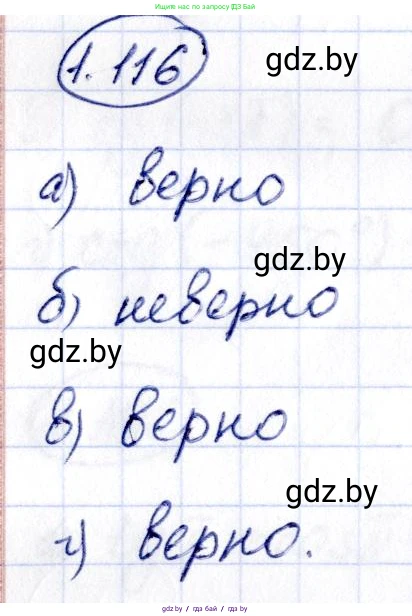 Ищите нас по запросу ГДЗ Бай
1.116
gdz.by
а) верно
gdz.by
б) неверно
gdz.by
в) верно
gdz.by
г) верно.
gdz.by / гдз бай / gdz.by